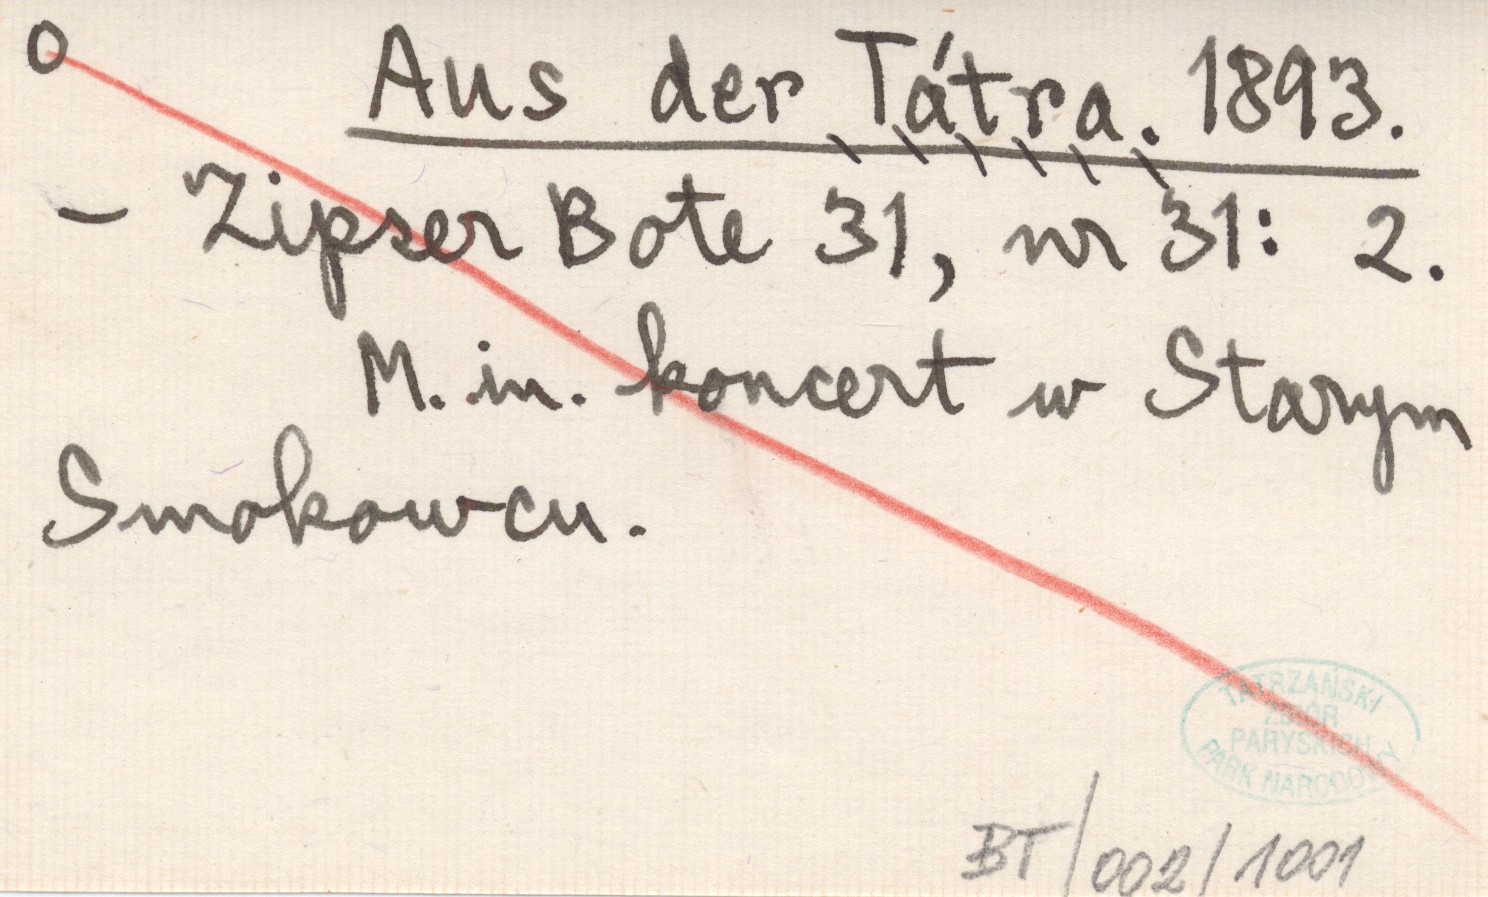 O Aus der Tátra. 1893.
– Zipser Bote 31, nr 31: 2.
M. in. koncert w Starym
Smokowcu.
TATRZAŃSKI
ZBIÓR
PARYSKICH
PARK NARODOWY
BT/002/1001